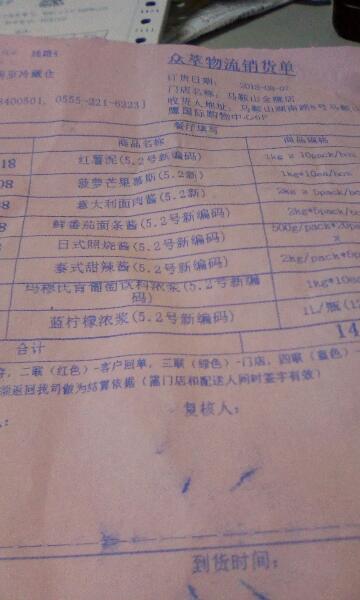 众萃物流销货单
线路4
订货日期: 2018-08-07
至冷藏仓
门店名称: 马鞍山金鹰店
8400501, 0555-221-6223)
收货人地址: 马鞍山湖南路8号马鞍山
鹰国际购物中心6F
餐厅填写
商品名称 商品规格
18 红薯泥(5.2号新编码) 1kg x 10pack/box
08 菠萝芒果慕斯(5.2新) 1kg*10ea/box
意大利面肉酱(5.2新) 2kg x 5pack/bo
鲜番茄面条酱(5.2号新编码) 2kg*5pack/
日式照烧酱(5.2号新编码) 500g/pack*20pa
x
泰式甜辣酱(5.2号新编码) 2kg/pack*6p
玛穆比肯葡萄饮料浓浆(5.2号新编 1kg*10ea
码)
蓝柠檬浓浆(5.2号新编码) 1L/瓶(1
合计 14
，二联(红色)-客户回单，三联(绿色)-门店，四联(蓝色)-
返回我司做为结算依据（需门店和配送人同时签字有效）
复核人:
到货时间: